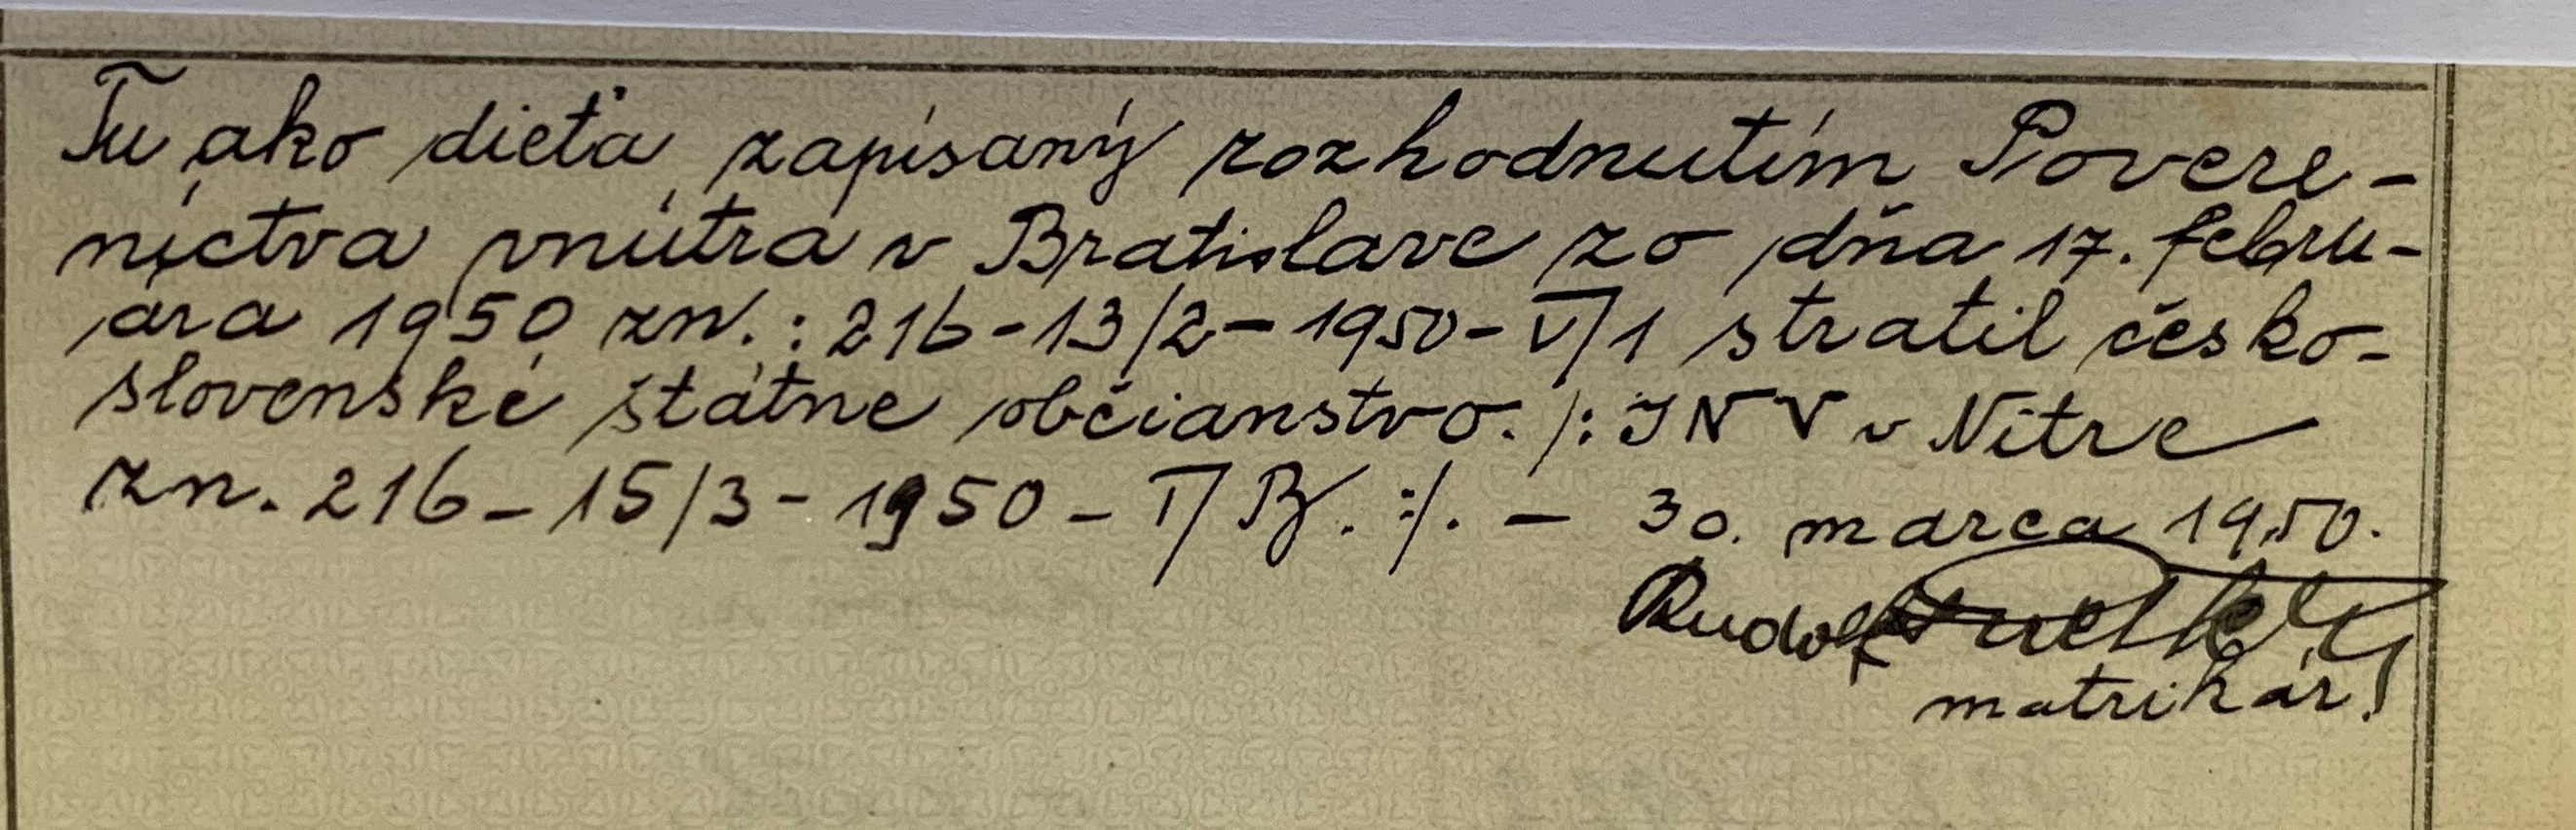 Tu ako dieťa zapísaný rozhodnutím Povere-
níctva vnútra v Bratislave zo dňa 17. febru-
ára 1950 zn.: 216-13/2-1950-V/1 stratil česko-
slovenské štátne občianstvo. /: JNV v Nitre
zn. 216-15/3-1950-I/B. :/. — 30. marca 1950.
Rudolf
matrikár.